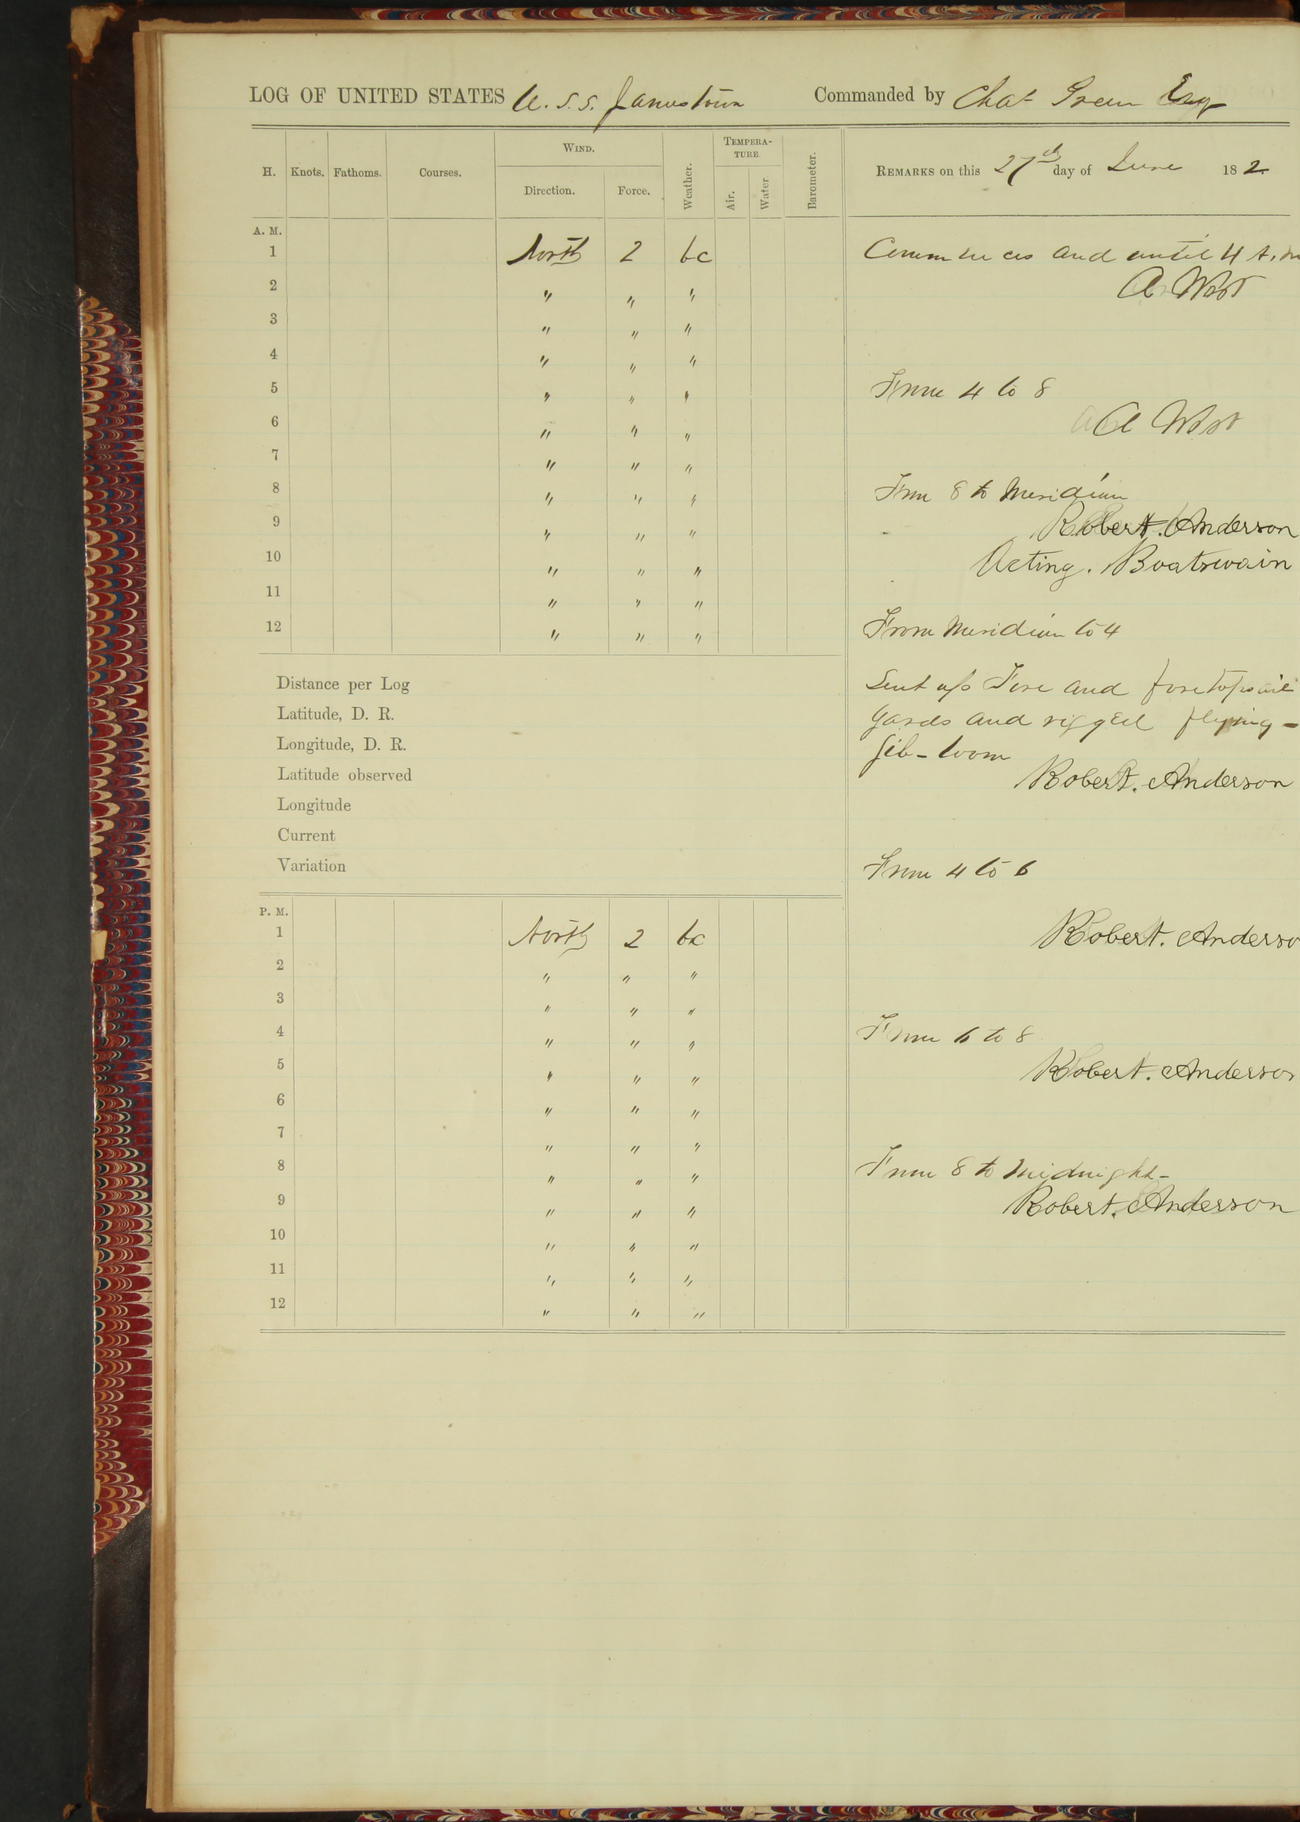 LOG OF UNITED STATES U. S. S. Jamestown Commanded by Chas Green Esq
H. Knots. Fathoms. Courses. WIND. Direction. Force. Weather. TEMPERA-TURE. Air. Water. Barometer. REMARKS on this 27th day of June 18 2
A. M.
1 North 2 bc Commences and until 4 A. M
2 " " " A West
3 " " "
4 " " "
5 " " " From 4 to 8
6 " " " A West
7 " " "
8 " " " From 8 to Meridian
9 " " " Robert. Anderson
10 " " " Acting. Boatswain
11 " " "
12 " " " From Meridian to 4
Distance per Log Sent up Fore and foretopsail
Latitude, D. R. yards and rigged flying-
Longitude, D. R. jib-boom
Latitude observed Robert. Anderson
Longitude
Current
Variation From 4 to 6
P. M.
1 North 2 bc Robert. Anderso
2 " " "
3 " " "
4 " " " From 6 to 8
5 " " " Robert. Anderson
6 " " "
7 " " "
8 " " " From 8 to Midnight-
9 " " " Robert. Anderson
10 " " "
11 " " "
12 " " "